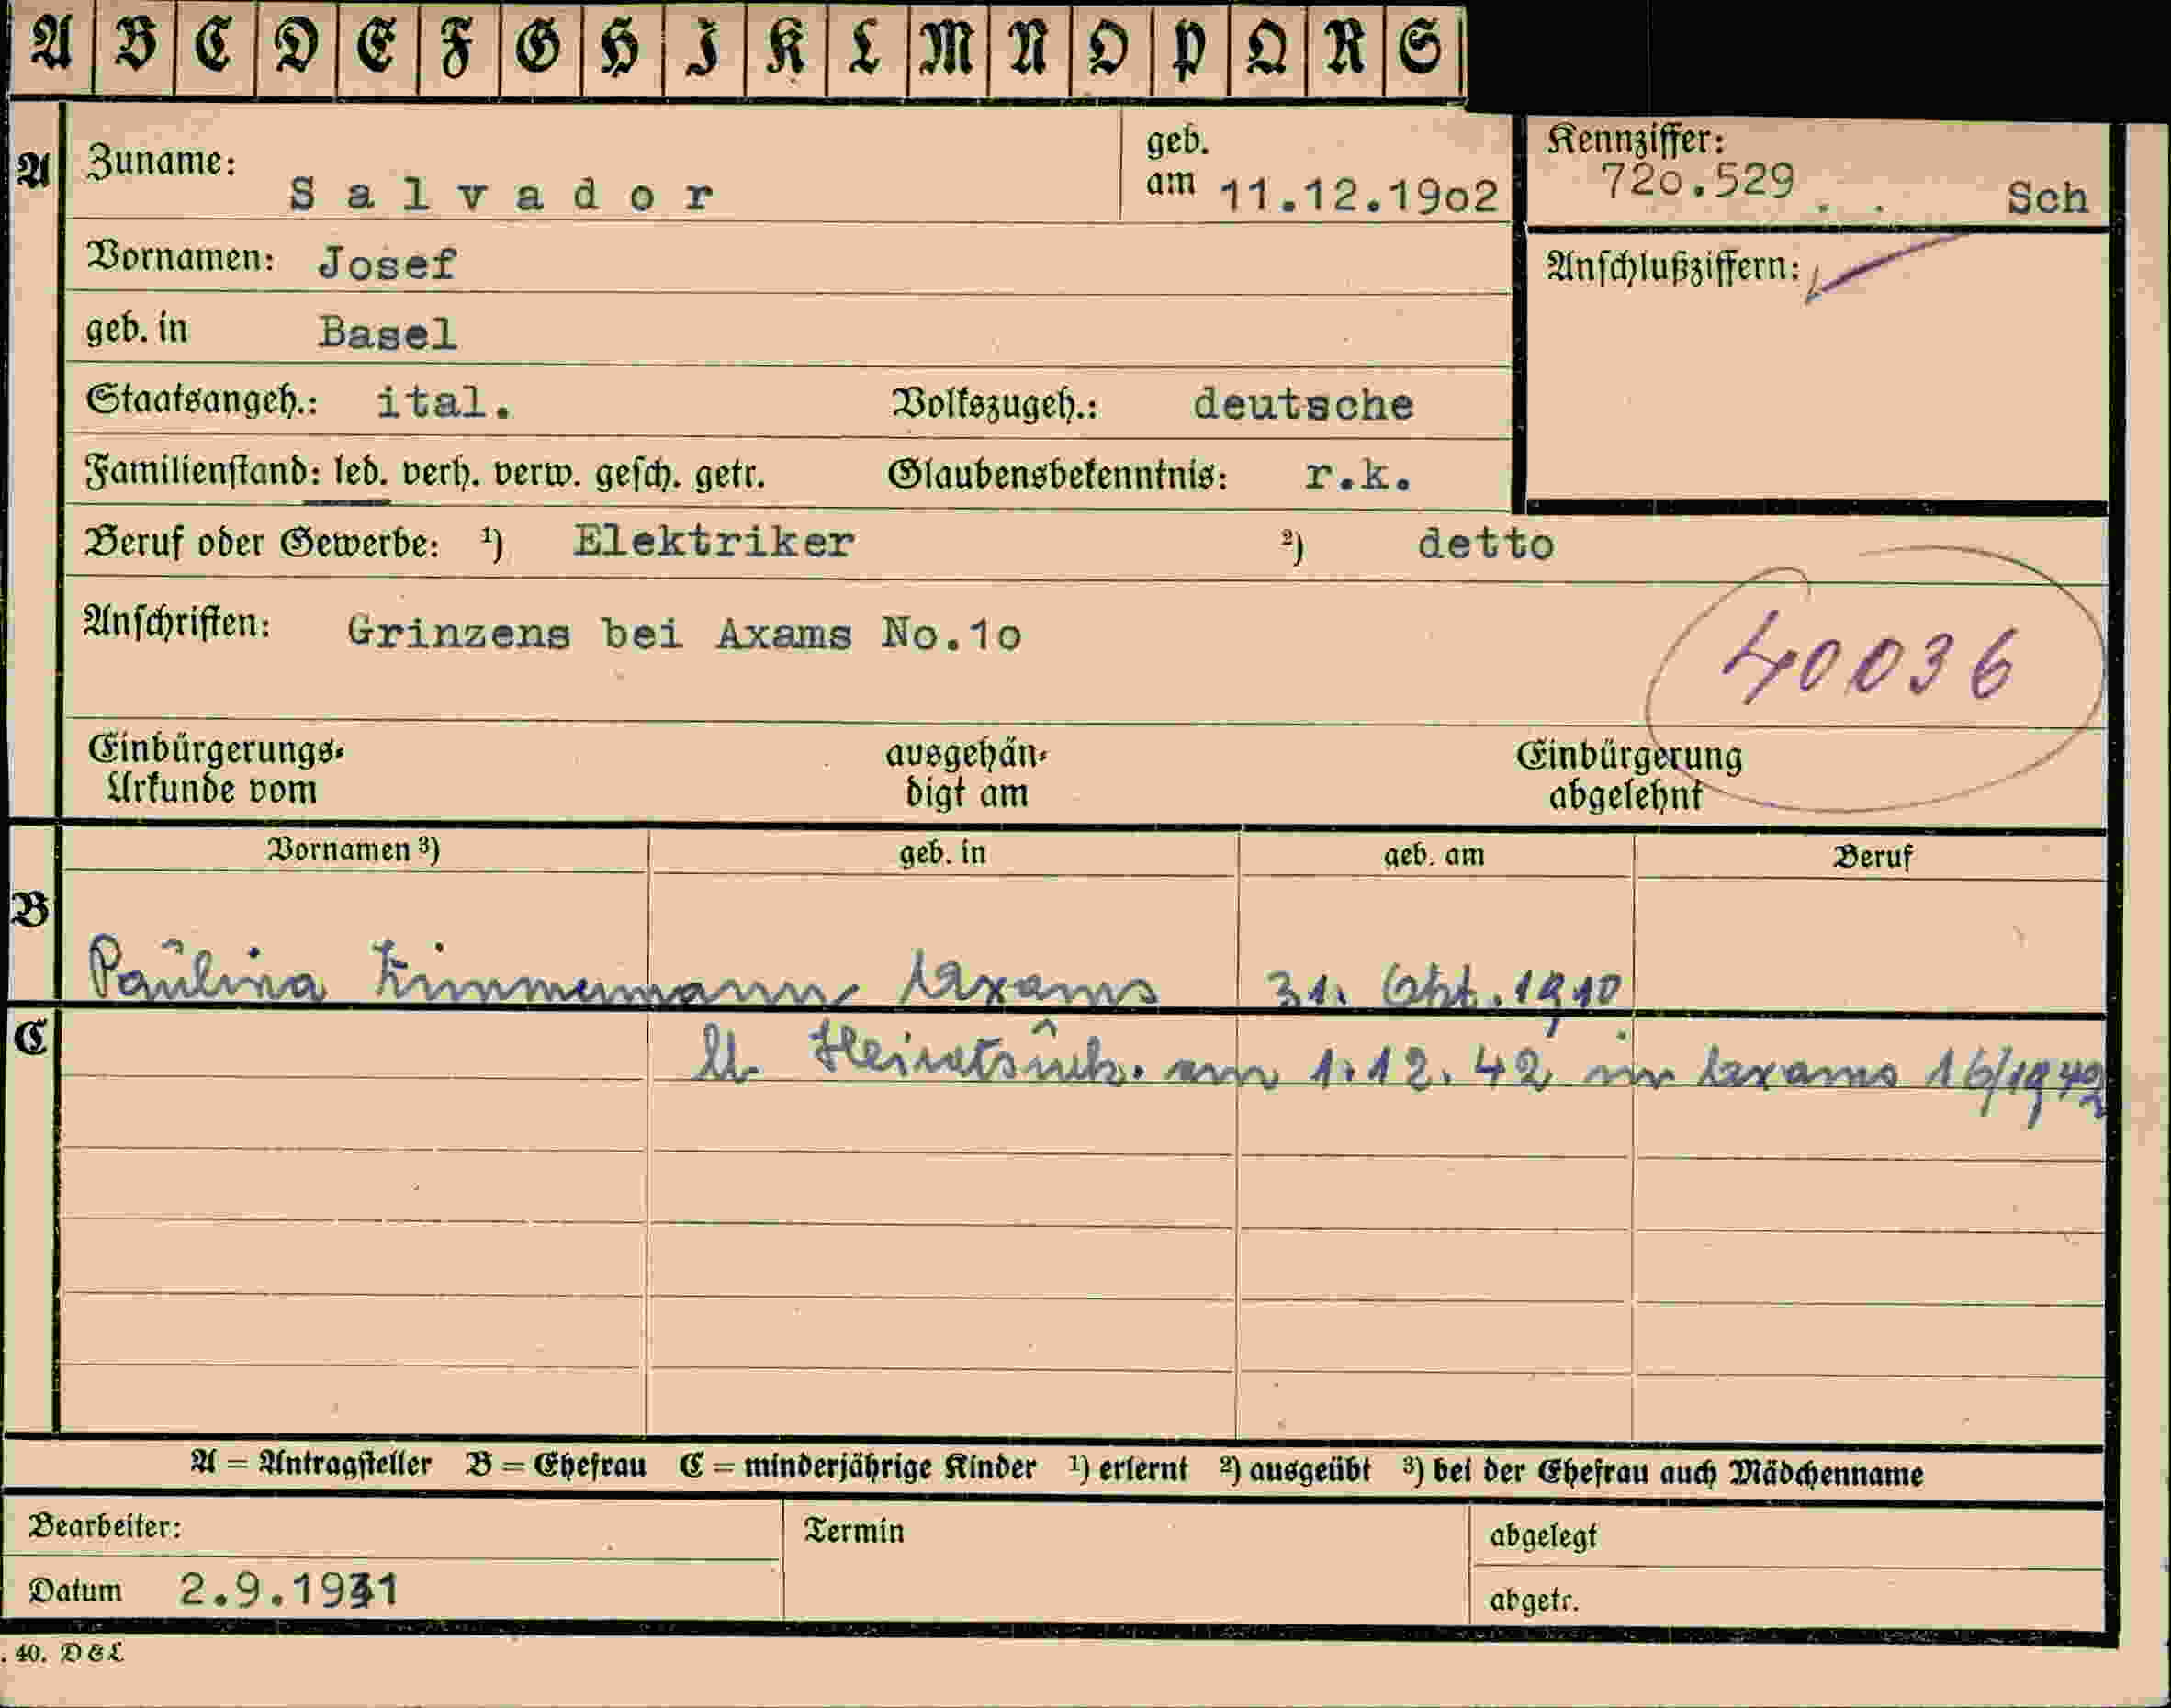 A B C D E F G H I K L M N O P Q R S
A
Zuname: Salvador
geb. am 11.12.1902
Kennziffer: 720.529 Sch
Vornamen: Josef
Anschlußziffern:
geb. in Basel
Staatsangeh.: ital. Volkszugeh.: deutsche
Familienstand: led. verh. verw. gesch. getr. Glaubensbekenntnis: r.k.
Beruf oder Gewerbe: ¹) Elektriker ²) detto
Anschriften: Grinzens bei Axams No.10
40036
Einbürgerungs-Urkunde vom ausgehändigt am Einbürgerung abgelehnt
Vornamen ³) geb. in geb. am Beruf
B
Paulina Zimmermann Axams 31. Okt. 1910
C
lt. Heiratsurk. am 1.12.42 in Axams 16/1942
A = Antragsteller B = Ehefrau C = minderjährige Kinder ¹) erlernt ²) ausgeübt ³) bei der Ehefrau auch Mädchenname
Bearbeiter: Termin abgelegt
Datum 2.9.1941 abgetr.
. 40. D&L